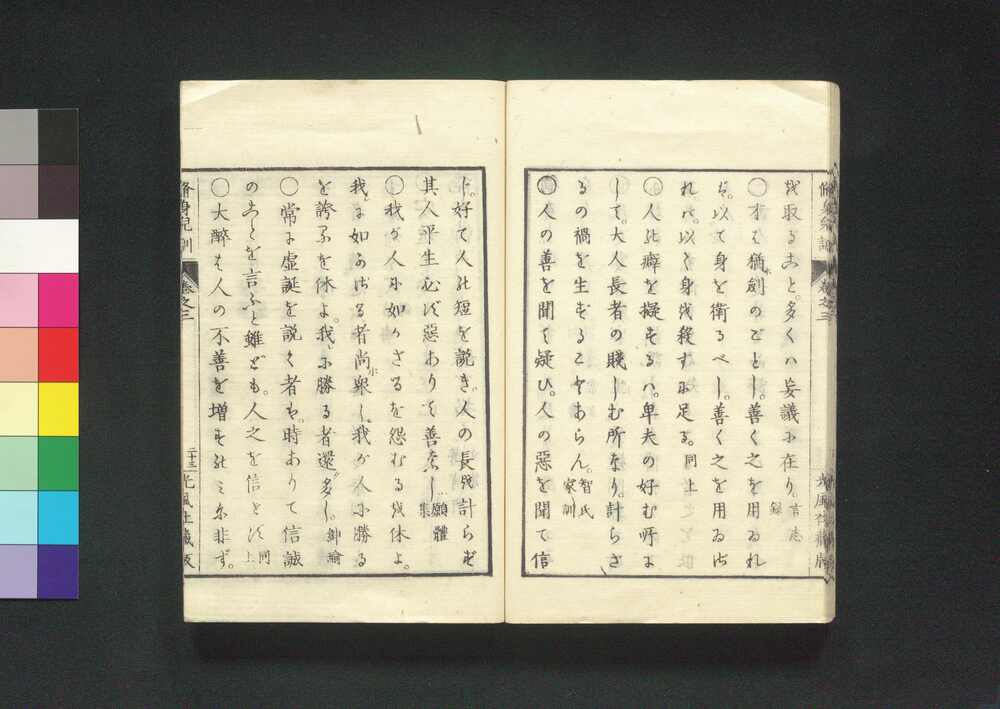 を取ること。多くハ妄議に在り。言志録
〇才は猶剣のごとし。善く之を用ゐれ
ば。以て身を衛るべし。善く之を用ゐざ
れバ。以て身を殺すに足る。同上
〇人の癖を擬するハ。卑夫の好む所に
して。大人長者の賤しむ所なり。計らざ
るの禍を生ずることあらん。智氏家訓
〇人の善を聞て疑ひ。人の惡を聞て信
じ。好て人の短を說き。人の長を計らず
其人平生必ず惡ありて善なし。願體集
〇我が人に如かざるを怨むるを休よ。
我に如かざる者尚衆し。我が人に勝る
を誇るを休よ。我に勝る者還多し。紳瑜
〇常に虛誕を説く者も。時ありて信誠
のことを言ふと雖ども。人之を信とせず。同上
〇大醉は人の不善を增すのミに非ず。
脩身兒訓
卷之三
二十三
光風社藏版